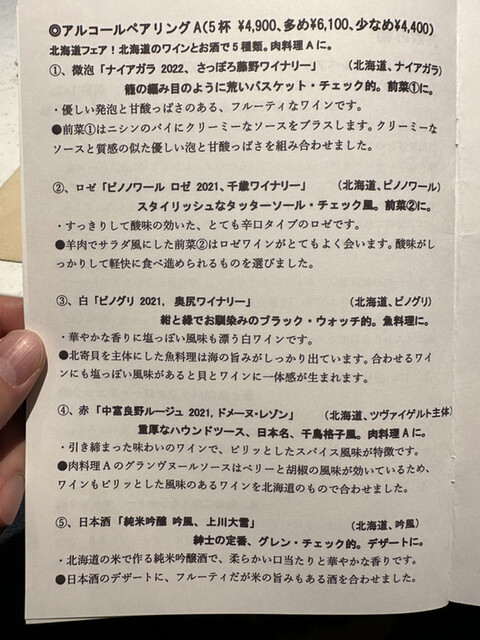 ◎アルコールペアリングA(5杯 ¥4,900、多め¥6,100、少なめ¥4,400)
北海道フェア！北海道のワインとお酒で5種類。肉料理Aに。
①、微泡「ナイアガラ 2022、さっぽろ藤野ワイナリー」 (北海道、ナイアガラ)
籠の編み目のように荒いバスケット・チェック的。前菜①に。
・優しい発泡と甘酸っぱさのある、フルーティなワインです。
●前菜①はニシンのパイにクリーミーなソースをプラスします。クリーミーな
ソースと質感の似た優しい泡と甘酸っぱさを組み合わせました。
②、ロゼ「ピノノワール ロゼ 2021、千歳ワイナリー」 (北海道、ピノノワール)
スタイリッシュなタッターソール・チェック風。前菜②に。
・すっきりして酸味の効いた、とても辛口タイプのロゼです。
●羊肉でサラダ風にした前菜②はロゼワインがとてもよく会います。酸味がし
っかりして軽快に食べ進められるものを選びました。
③、白「ピノグリ 2021, 奥尻ワイナリー」 (北海道、ピノグリ)
紺と緑でお馴染みのブラック・ウォッチ的。魚料理に。
・華やかな香りに塩っぽい風味も漂う白ワインです。
●北寄貝を主体にした魚料理は海の旨みがしっかり出ています。合わせるワイ
ンにも塩っぽい風味があると貝とワインに一体感が生まれます。
④、赤「中富良野ルージュ 2021, ドメーヌ・レゾン」 (北海道、ツヴァイゲルト主体)
重厚なハウンドツース、日本名、千鳥格子風。肉料理Aに。
・引き締まった味わいのワインで、ピリッとしたスパイス風味が特徴です。
●肉料理Aのグランヴヌールソースはベリーと胡椒の風味が効いているため、
ワインもピリッとした風味のあるワインを北海道のもので合わせました。
⑤、日本酒「純米吟醸 吟風、上川大雪」 (北海道、吟風)
紳士の定番、グレン・チェック的。デザートに。
・北海道の米で作る純米吟醸酒で、柔らかい口当たりと華やかな香りです。
●日本酒のデザートに、フルーティだが米の旨みもある酒を合わせました。